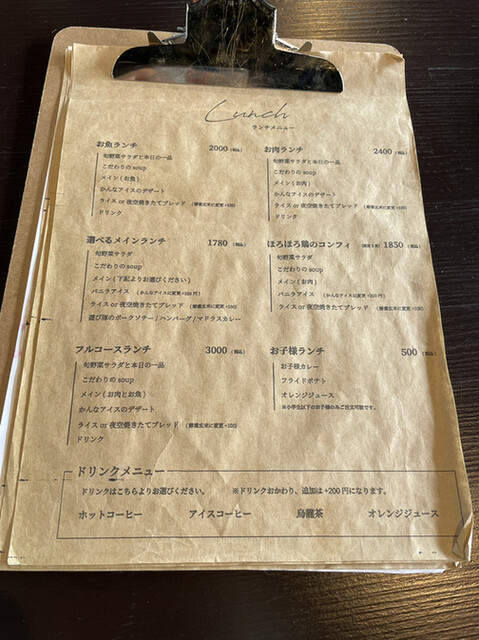 Lunch
ランチメニュー
お魚ランチ 2000 (税込)
旬野菜サラダと本日の一品
こだわりのsoup
メイン(お魚)
かんなアイスのデザート
ライス or 夜空焼きたてブレッド (酵素玄米に変更+100)
ドリンク
お肉ランチ 2400 (税込)
旬野菜サラダと本日の一品
こだわりのsoup
メイン(お肉)
かんなアイスのデザート
ライス or 夜空焼きたてブレッド (酵素玄米に変更+100)
ドリンク
選べるメインランチ 1780 (税込)
旬野菜サラダ
こだわりのsoup
メイン(下記よりお選びください)
バニラアイス (かんなアイスに変更+200円)
ライス or 夜空焼きたてブレッド (酵素玄米に変更+100)
遊び豚のポークソテー/ハンバーグ/マドラスカレー
ほろほろ鶏のコンフィ 1850 (税込)
旬野菜サラダ
こだわりのsoup
メイン(お肉)
バニラアイス (かんなアイスに変更+200円)
ライス or 夜空焼きたてブレッド (酵素玄米に変更+100)
フルコースランチ 3000 (税込)
旬野菜サラダと本日の一品
こだわりのsoup
メイン(お肉とお魚)
かんなアイスのデザート
ライス or 夜空焼きたてブレッド (酵素玄米に変更+100)
ドリンク
お子様ランチ 500 (税込)
お子様カレー
フライドポテト
オレンジジュース
※小学生以下のお子様のみご注文可能です。
ドリンクメニュー
ドリンクはこちらよりお選びください。 ※ドリンクおかわり、追加は+200円になります。
ホットコーヒー アイスコーヒー 烏龍茶 オレンジジュース